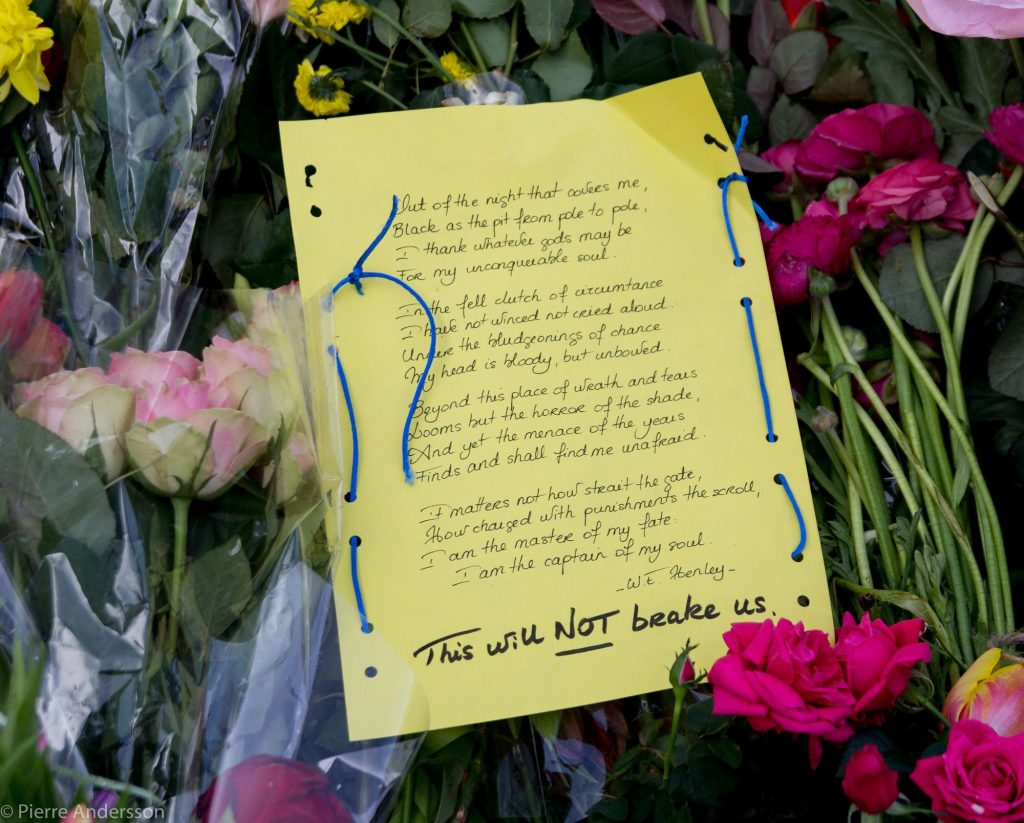 Out of the night that covers me,
Black as the pit from pole to pole,
I thank whatever gods may be
For my unconquerable soul.
In the fell clutch of circumtance
I have not winced not cried aloud.
Under the bludgeonings of chance
My head is bloody, but unbowed.
Beyond this place of wrath and tears
Looms but the horror of the shade,
And yet the menace of the years
Finds and shall find me unafraid.
It matters not how strait the gate,
How charged with punishments the scroll,
I am the master of my fate:
I am the captain of my soul.
-W.E. Henley-
This will NOT brake us.
© Pierre Andersson